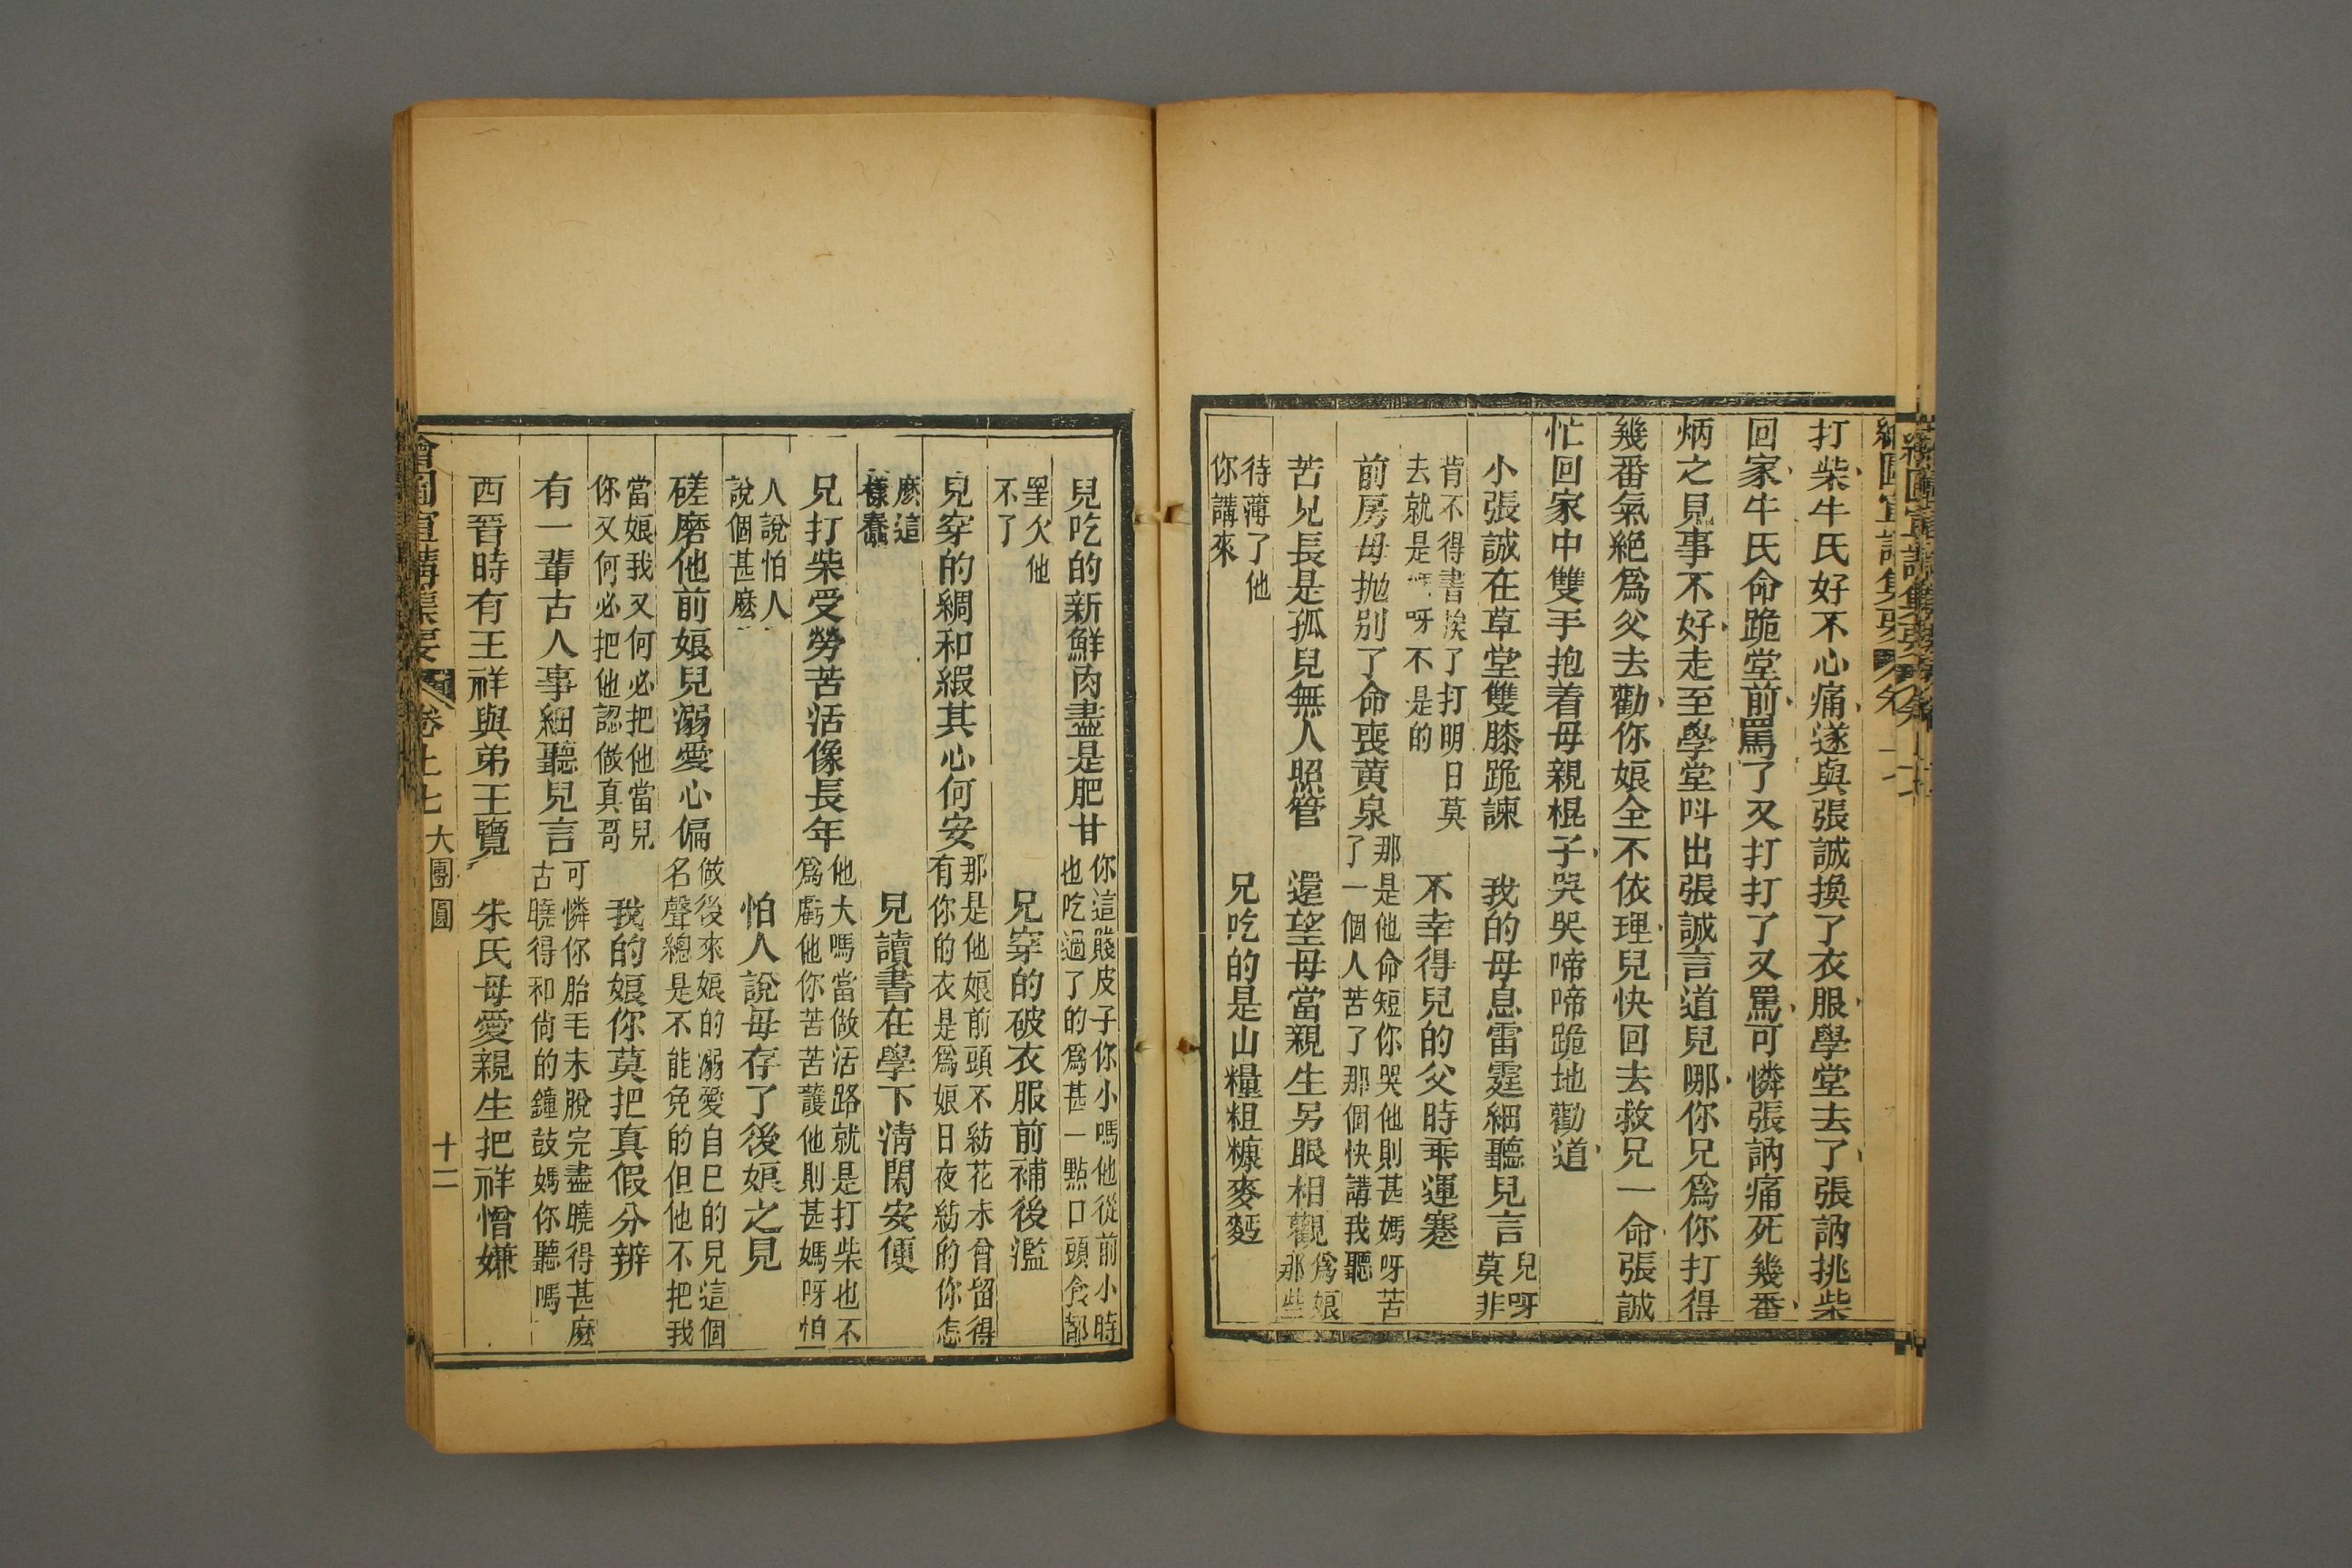 打柴牛氏好不心痛遂與張誠換了衣服學堂去了張訥挑柴
回家牛氏命跪堂前罵了又打打了又罵可憐張訥痛死幾番
炳之見事不好走至學堂呌出張誠言道兒哪你兄爲你打得
幾番氣絕爲父去勸你娘全不依理兒快回去救兄一命張誠
忙回家中雙手抱着母親棍子哭哭啼啼跪地勸道
小張誠在草堂雙膝跪諫 我的母息雷霆細聽兒言 兒呀
莫非
肯不得書挨了打明日莫
去就是 呀不是的
不幸得兒的父時乖運蹇
前房母抛別了命喪黄泉 那是他命短你哭他則甚媽呀苦
了一個人苦了那個快講我聽
苦兄長是孤兒無人照管 還望母當親生另眼相觀 爲娘
那些
待薄了他
你講來
兄吃的是山糧粗糠麥麫
兒吃的新鮮肉盡是肥甘 你這賤皮子你小嗎他從前小時
也吃過了的爲甚一點口頭食都
欠他
不了
兄穿的破衣服前補後濫
兒穿的綢和緞其心何安 那是他娘前頭不紡花未曾留得
有你的衣是爲娘日夜紡的你怎
麽這
樣蠢
兒讀書在學下清閑安便
兄打柴受勞苦活像長年 他大嗎當做活路就是打柴也不
爲虧他你苦苦護他則甚媽呀怕
人說怕人
說個甚麽
怕人說母存了後娘之見
磋磨他前娘兒溺愛心偏 做後來娘的溺愛自己的兒這個
名聲總是不能免的但他不把我
當娘我又何必把他當兒
你又何必把他認做真哥
我的娘你莫把真假分辨
有一輩古人事細聽兒言 可憐你胎毛未脫完盡曉得甚麽
古曉得和尙的鐘鼓媽你聽嗎
西晉時有王祥與弟王覽 朱氏母愛親生把祥憎嫌
繪圖宣講集要 卷上七 大團圓 十二